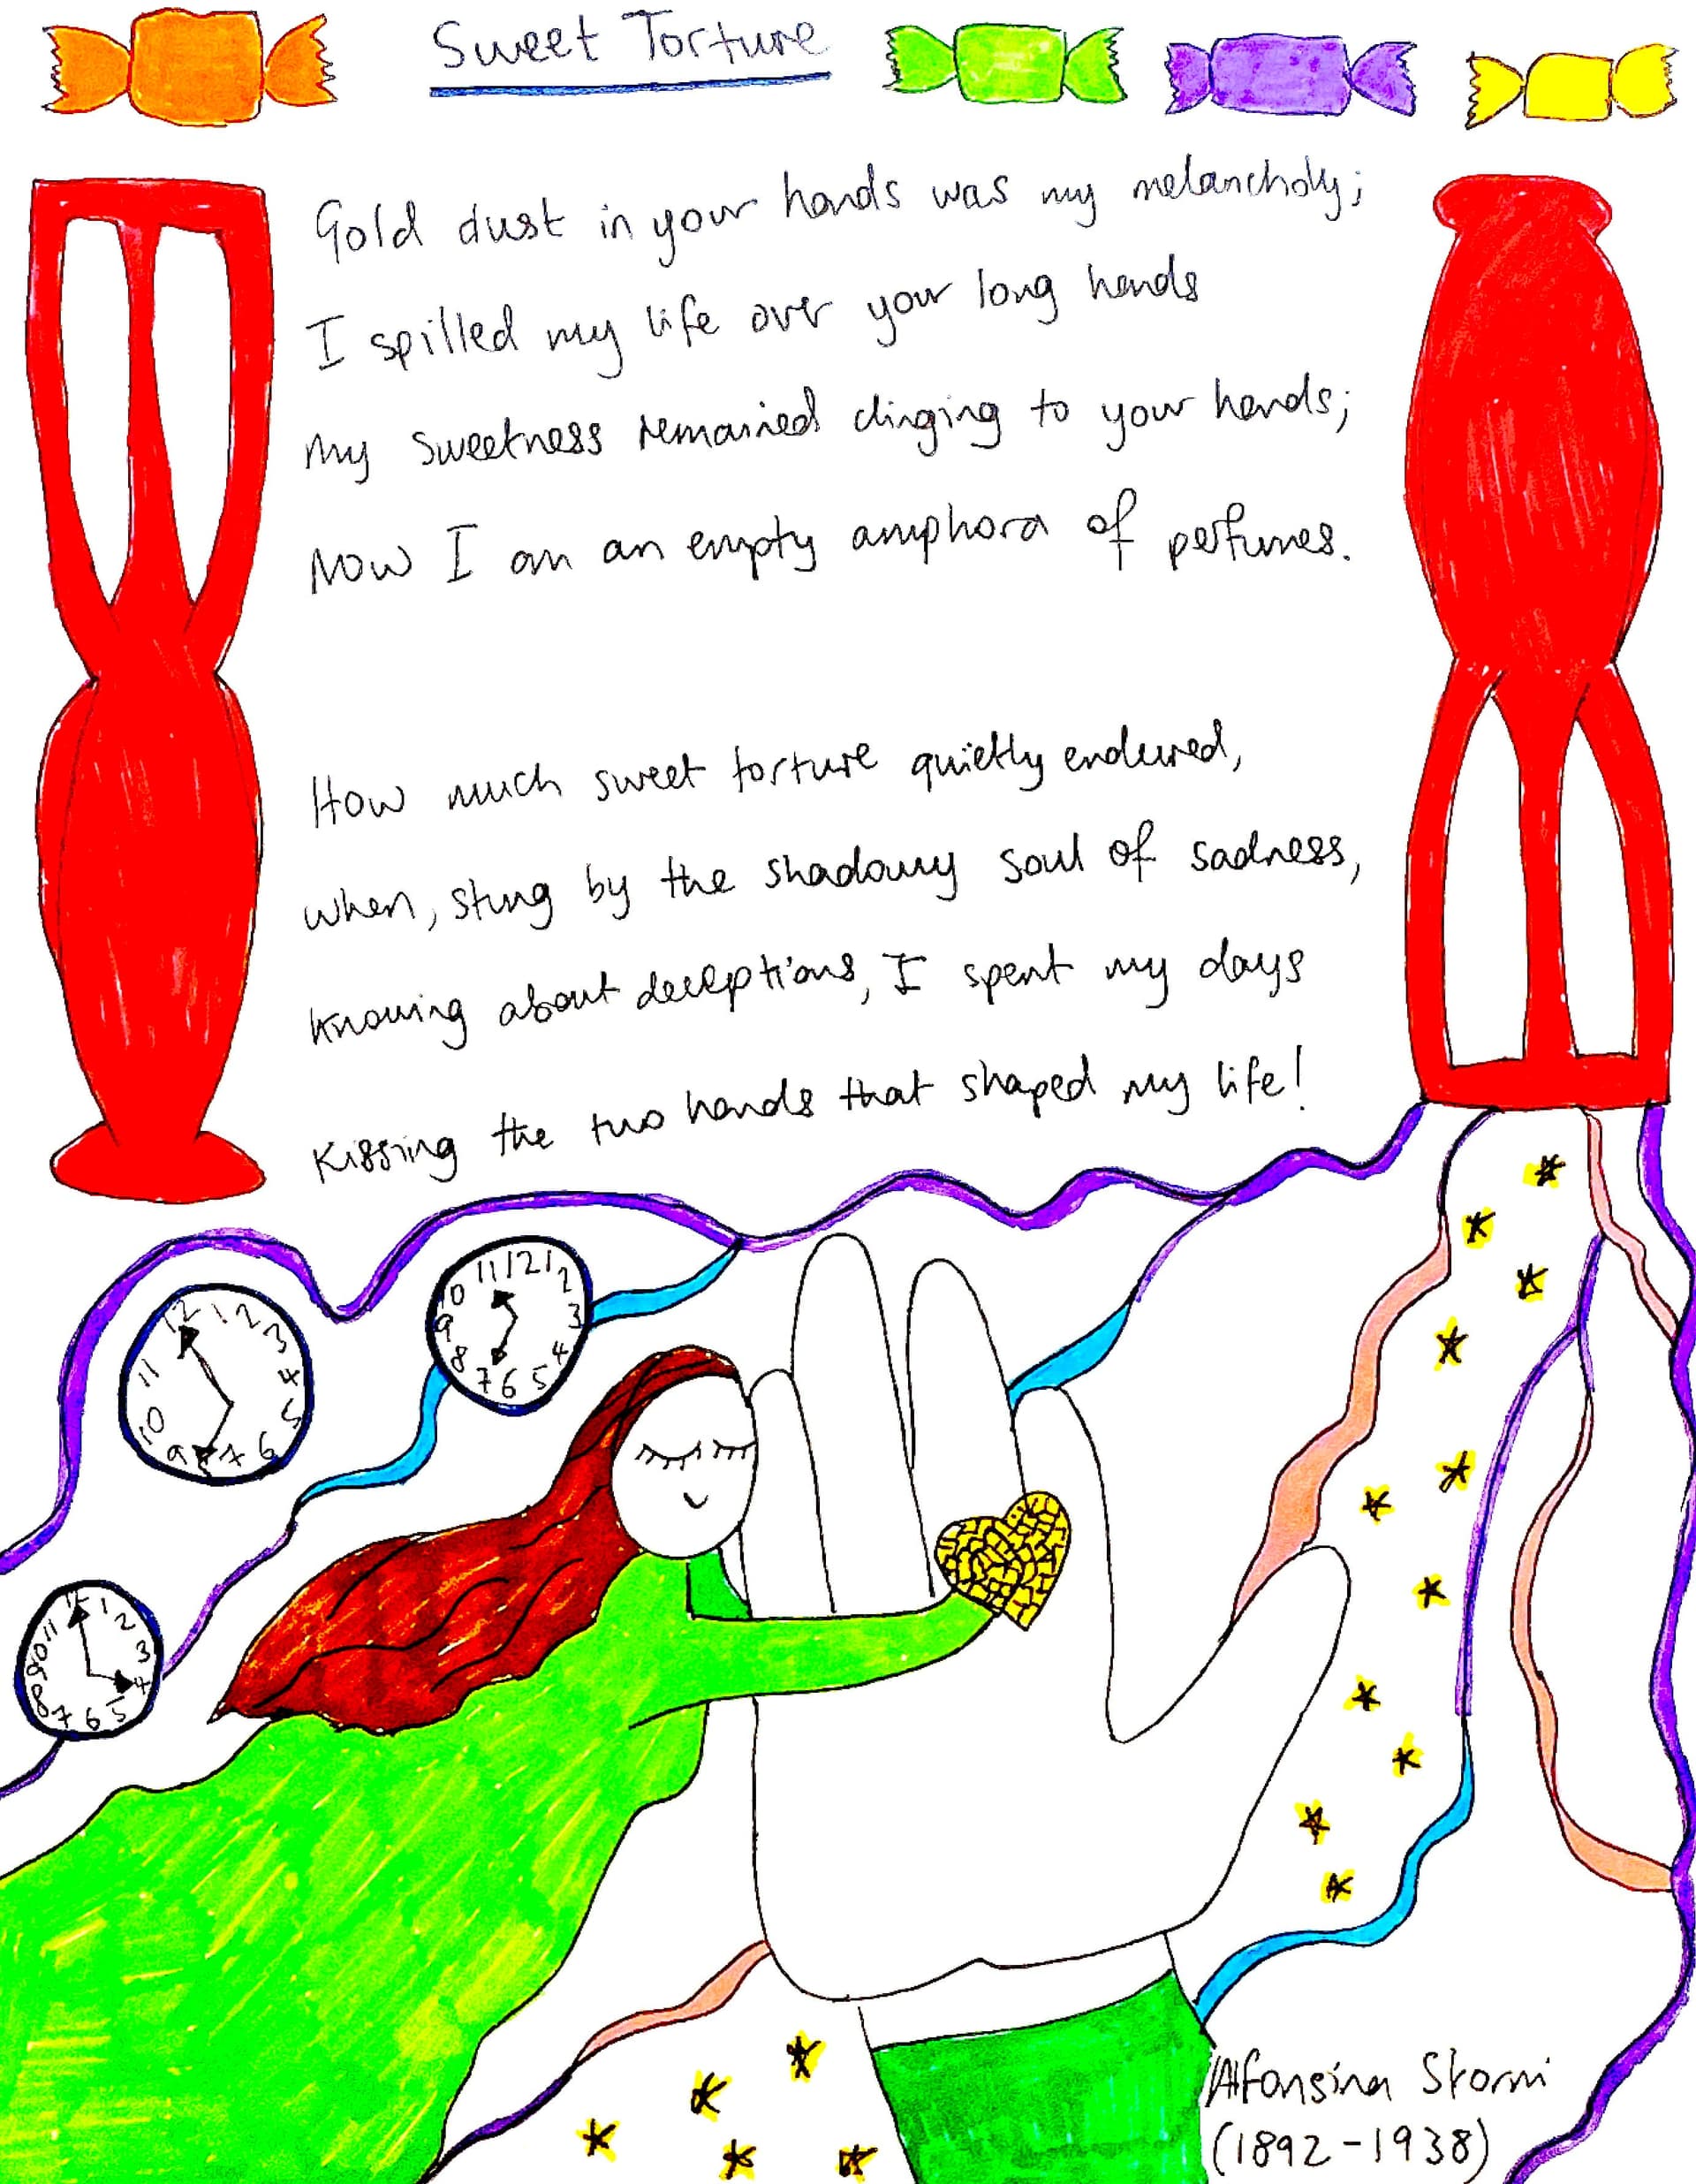 Sweet Torture
Gold dust in your hands was my melancholy;
I spilled my life over your long hands
My sweetness remained clinging to your hands;
Now I am an empty amphora of perfumes.
How much sweet torture quietly endured,
when, stung by the shadowy soul of sadness,
knowing about deceptions, I spent my days
kissing the two hands that shaped my life!
12 1 2 3 4 5 6 7 9 10 11
11 12 1 2 3 4 5 6 7 8 9 10
1 2 3 4 5 6 7 8 9 10 11
Alfonsina Storni
(1892-1938)